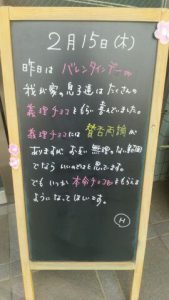 2月15日(木)
昨日は バレンタインデー
我が家の息子達は たくさんの
義理チョコをもらい喜んでいました。
義理チョコには 賛否両論が
ありますが お互い無理のない範囲
でなら いいのではと思っています。
でも いつか 本命チョコをもらえる
ようになってほしいです。
H